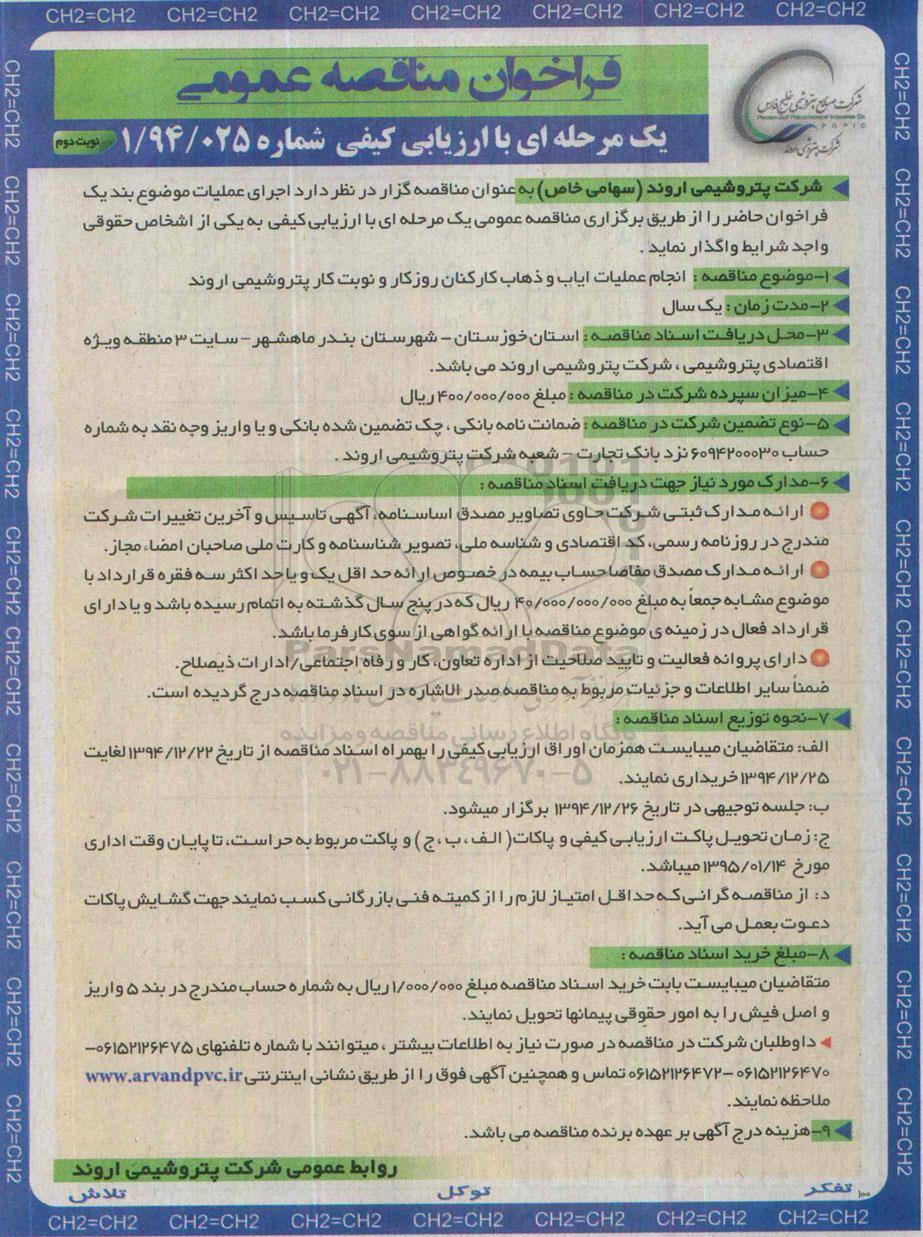 CH2=CH2 CH2=CH2 CH2=CH2 CH2=CH2 CH2=CH2 CH2=CH2 CH2=CH2
فراخوان مناقصه عمومی
شرکت صنایع پتروشیمی خلیج فارس
Persian Gulf Petrochemical Industries Co.
PGPIC
شرکت پتروشیمی اروند
یک مرحله ای با ارزیابی کیفی شماره ۱/۹۴/۰۲۵
نوبت دوم
شرکت پتروشیمی اروند (سهامی خاص) به عنوان مناقصه گزار در نظر دارد اجرای عملیات موضوع بند یک
فراخوان حاضر را از طریق برگزاری مناقصه عمومی یک مرحله ای با ارزیابی کیفی به یکی از اشخاص حقوقی
واجد شرایط واگذار نماید .
۱-موضوع مناقصه : انجام عملیات ایاب و ذهاب کارکنان روزکار و نوبت کار پتروشیمی اروند
۲-مدت زمان : یک سال
۳-محل دریافت اسناد مناقصه : استان خوزستان - شهرستان بندر ماهشهر - سایت ۳ منطقه ویژه
اقتصادی پتروشیمی ، شرکت پتروشیمی اروند می باشد.
۴-میزان سپرده شرکت در مناقصه : مبلغ ۴۰۰/۰۰۰/۰۰۰ ریال
۵-نوع تضمین شرکت در مناقصه : ضمانت نامه بانکی ، چک تضمین شده بانکی و یا واریز وجه نقد به شماره
حساب ۶۰۹۴۲۰۰۰۳۰ نزد بانک تجارت - شعبه شرکت پتروشیمی اروند .
۶-مدارک مورد نیاز جهت دریافت اسناد مناقصه :
ارائه مدارک ثبتی شرکت حاوی تصاویر مصدق اساسنامه، آگهی تاسیس و آخرین تغییرات شرکت
مندرج در روزنامه رسمی، کد اقتصادی و شناسه ملی، تصویر شناسنامه و کارت ملی صاحبان امضاء مجاز.
ارائه مدارک مصدق مفاصاحساب بیمه در خصوص ارائه حد اقل یک و یا حد اکثر سه فقره قرارداد با
موضوع مشابه جمعاً به مبلغ ۴۰/۰۰۰/۰۰۰/۰۰۰ ریال که در پنج سال گذشته به اتمام رسیده باشد و یا دارای
قرارداد فعال در زمینه ی موضوع مناقصه با ارائه گواهی از سوی کارفرما باشد.
دارای پروانه فعالیت و تایید صلاحیت از اداره تعاون، کار و رفاه اجتماعی/ادارات ذیصلاح.
ضمناً سایر اطلاعات و جزئیات مربوط به مناقصه صدر الاشاره در اسناد مناقصه درج گردیده است.
ParsNamadData
پایگاه اطلاع رسانی مناقصه و مزایده
۰۲۱-۸۸۳۴۹۶۷۰-۵
۷-نحوه توزیع اسناد مناقصه :
الف: متقاضیان میبایست همزمان اوراق ارزیابی کیفی را بهمراه اسناد مناقصه از تاریخ ۱۳۹۴/۱۲/۲۲ لغایت
۱۳۹۴/۱۲/۲۵ خریداری نمایند.
ب: جلسه توجیهی در تاریخ ۱۳۹۴/۱۲/۲۶ برگزار میشود.
ج: زمان تحویل پاکت ارزیابی کیفی و پاکات( الف ، ب ، ج ) و پاکت مربوط به حراست، تا پایان وقت اداری
مورخ ۱۳۹۵/۰۱/۱۴ میباشد.
د: از مناقصه گرانی که حداقل امتیاز لازم را از کمیته فنی بازرگانی کسب نمایند جهت گشایش پاکات
دعوت بعمل می آید.
۸-مبلغ خرید اسناد مناقصه :
متقاضیان میبایست بابت خرید اسناد مناقصه مبلغ ۱/۰۰۰/۰۰۰ ریال به شماره حساب مندرج در بند ۵ واریز
و اصل فیش را به امور حقوقی پیمانها تحویل نمایند.
داوطلبان شرکت در مناقصه در صورت نیاز به اطلاعات بیشتر ، میتوانند با شماره تلفنهای ۰۶۱۵۲۱۲۶۴۷۵-
۰۶۱۵۲۱۲۶۴۷۰ -۰۶۱۵۲۱۲۶۴۷۲ تماس و همچنین آگهی فوق را از طریق نشانی اینترنتی www.arvandpvc.ir
ملاحظه نمایند.
۹-هزینه درج آگهی بر عهده برنده مناقصه می باشد.
روابط عمومی شرکت پتروشیمی اروند
تفکر توکل تلاش
۱۰۰
CH2=CH2 CH2=CH2 CH2=CH2 CH2=CH2 CH2=CH2 CH2=CH2 CH2=CH2